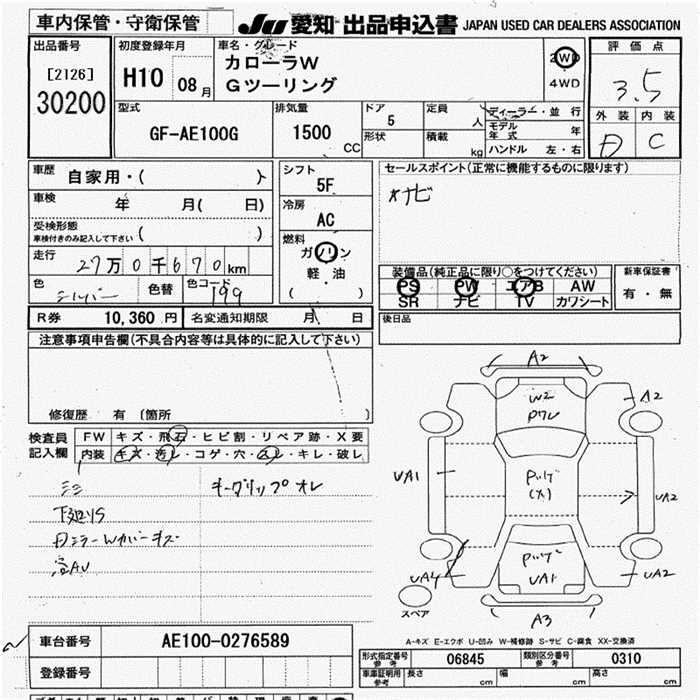 車内保管・守衛保管
JU 愛知 出品申込書 JAPAN USED CAR DEALERS ASSOCIATION
出品番号
[2126]
30200
初度登録年月
H10 08月
車名・グレード
カローラW
Gツーリング
2WD
4WD
評価点
3.5
外装 内装
D C
型式
GF-AE100G
排気量
1500 CC
ドア
5
形状
定員 人
積載 kg
ディーラー・並行
モデル年式 年
ハンドル 左・右
車歴
自家用・( )
車検 年 月( 日)
受検形態
車検付きのみ記入して下さい ( )
走行
27万0千670km
色
シルバー
色替
色コード
199
シフト
5F
冷房
AC
燃料
ガソリン
軽・油
( )
セールスポイント(正常に機能するものに限ります)
ナビ
装備品(純正品に限り○をつけてください)
PS PW エアB AW
SR ナビ TV カワシート
新車保証書
有・無
後日品
R券 10,360 円 名変通知期限 月 日
注意事項申告欄(不具合内容等は具体的に記入して下さい)
修復歴 有 (箇所 )
検査員
記入欄
FW キズ・飛石・ヒビ割・リペア跡・X要
内装 キズ・汚レ・コゲ・穴・スレ・キレ・破レ
キーグリップオレ
下廻りS
DミラーWカバーキズ
A2
W2
A2
UA1
UA2
UA4
UA1
UA2
A3
スペア
A-キズ E-エクボ U-凹み W-補修跡 S-サビ C-腐食 XX-交換済
車台番号 AE100-0276589
登録番号
形式指定番号
参考
06845
類別区分番号
参考
0310
車庫証明用
参考
長さ cm 幅 cm 高さ cm